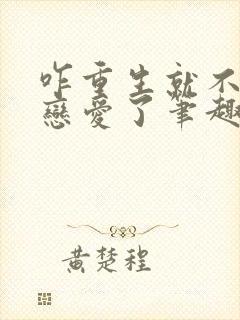 咋重生就不
戀愛了筆趣
黃楚程